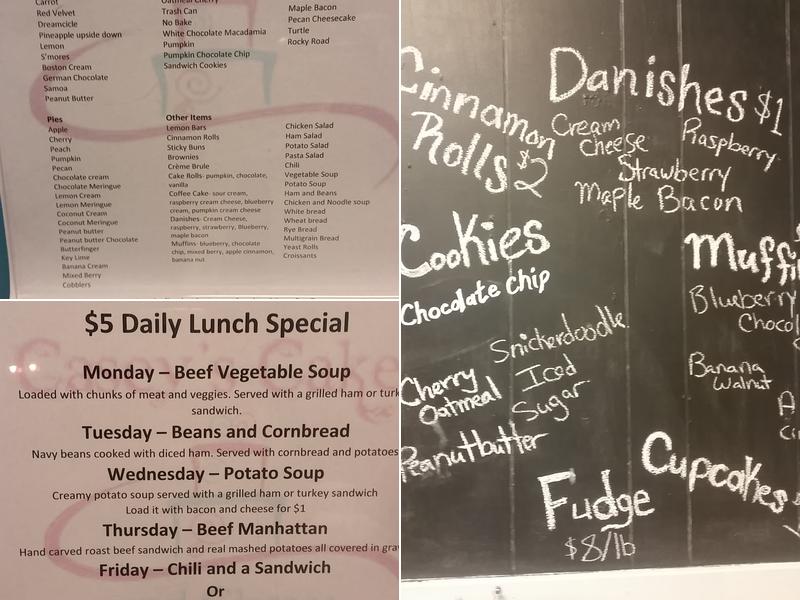 Carrot
Red Velvet
Dreamcicle
Pineapple upside down
Lemon
S'mores
Boston Cream
German Chocolate
Samoa
Peanut Butter
Oatmeal Cherry
Trash Can
No Bake
White Chocolate Macadamia
Pumpkin
Pumpkin Chocolate Chip
Sandwich Cookies
Maple Bacon
Pecan Cheesecake
Turtle
Rocky Road
Pies
Apple
Cherry
Peach
Pumpkin
Pecan
Chocolate cream
Chocolate Meringue
Lemon Cream
Lemon Meringue
Coconut Cream
Coconut Meringue
Peanut butter
Peanut butter Chocolate
Butterfinger
Key Lime
Banana Cream
Mixed Berry
Cobblers
Other Items
Lemon Bars
Cinnamon Rolls
Sticky Buns
Brownies
Crème Brule
Cake Rolls- pumpkin, chocolate,
vanilla
Coffee Cake- sour cream,
raspberry cream cheese, blueberry
cream, pumpkin cream cheese
Danishes- Cream Cheese,
raspberry, strawberry, Blueberry,
maple bacon
Muffins- blueberry, chocolate
chip, mixed berry, apple cinnamon,
banana nut
Chicken Salad
Ham Salad
Potato Salad
Pasta Salad
Chili
Vegetable Soup
Potato Soup
Ham and Beans
Chicken and Noodle soup
White bread
Wheat bread
Rye Bread
Multigrain Bread
Yeast Rolls
Croissants
$5 Daily Lunch Special
Monday – Beef Vegetable Soup
Loaded with chunks of meat and veggies. Served with a grilled ham or turk
sandwich.
Tuesday – Beans and Cornbread
Navy beans cooked with diced ham. Served with cornbread and potatoes
Wednesday – Potato Soup
Creamy potato soup served with a grilled ham or turkey sandwich
Load it with bacon and cheese for $1
Thursday – Beef Manhattan
Hand carved roast beef sandwich and real mashed potatoes all covered in gra
Friday – Chili and a Sandwich
Or
Cinnamon
Rolls $2
Danishes $1
Cream
Cheese
Raspberry
Strawberry
Maple Bacon
Cookies
Chocolate Chip
Snickerdoodle
Cherry
Oatmeal
Iced
Sugar
Peanutbutter
Muffi
Blueberry
Choco
Banana
Walnut
Cupcakes
Fudge
$8/lb